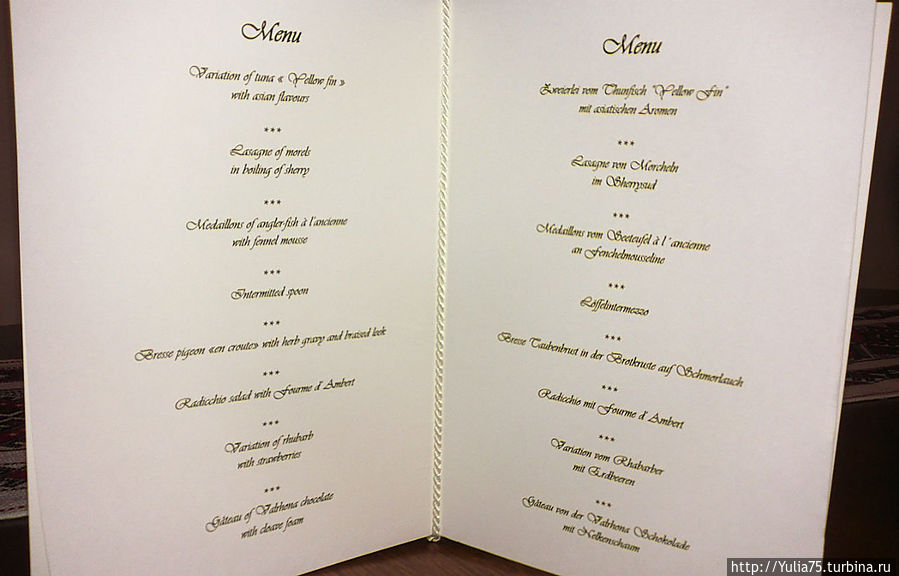 Menu
Variation of tuna « Yellow fin »
with asian flavours
***
Lasagne of morels
in boiling of sherry
***
Medaillons of angler-fish à l'ancienne
with fennel mousse
***
Intermitted spoon
***
Bresse pigeon «en croute» with herb gravy and braised leek
***
Radicchio salad with Fourme d'Ambert
***
Variation of rhubarb
with strawberries
***
Gâteau of Valrhona chocolate
with cloave foam
Menu
Zweierlei vom Thunfisch "Yellow Fin"
mit asiatischen Aromen
***
Lasagne von Morcheln
im Sherrysud
***
Medaillons vom Seeteufel à l´ancienne
an Fenchelmousseline
***
Löffelintermezzo
***
Bresse Taubenbrust in der Brotkruste auf Schmorlauch
***
Radicchio mit Fourme d'Ambert
***
Variation vom Rhabarber
mit Erdbeeren
***
Gâteau von der Valrhona Schokolade
mit Nelkenschaum
http://Yulia75.turbina.ru